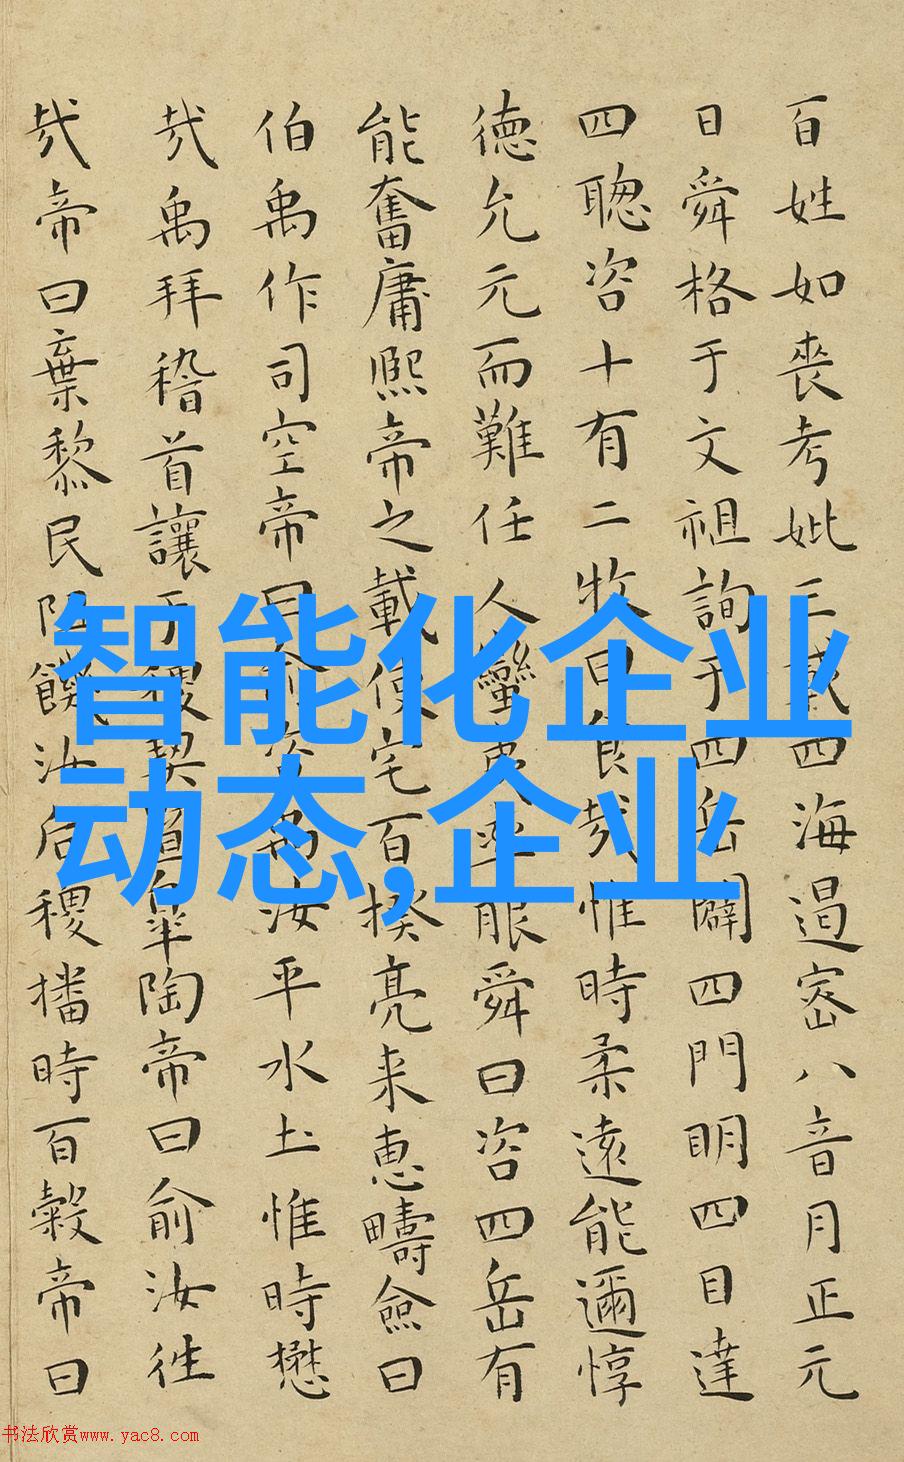 百姓如喪考妣三載四海遏密八音月正元
日舜格于文祖詢于四岳闢四門明四目達
四聰咨十有二牧曰食哉惟時柔遠能邇惇
德允元而難任人蠻夷率服舜曰咨四岳有
能奮庸熙帝之載使宅百揆亮来惠疇僉曰
伯禹作司空帝曰俞咨禹汝平水土惟時懋
哉禹拜稽首讓于稷契暨皐陶帝曰俞汝往
哉帝曰棄黎民阻饑汝后稷播時百穀帝曰
智能化企业
动态,企业
书法欣赏www.yac8.com